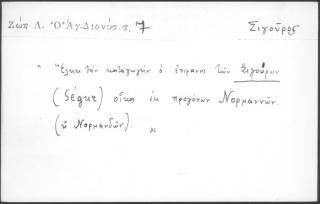 Ζώη Λ. Ὁ Ἅγ. Διονύσ. σ. 7
Σιγοῦρος
" Ἕλκει τὴν καταγωγὴν ὁ ἐπιφανὴς τῶν Σιγούρων
(Ségur) οἶκος ἐκ προγόνων Νορμαννῶν.
(ἢ Νορμανδῶν). "